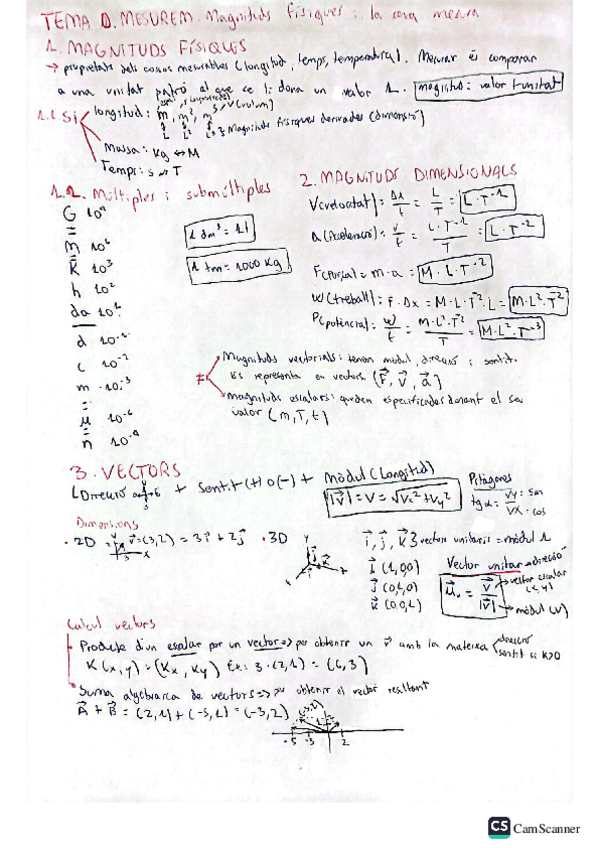 TEMA 0. MESUREM. Magnituds físiques i la seva mesura
1. MAGNITUDS FÍSIQUES
→ propietats dels cossos mesurables (longitud, temps, temperatura). Mesurar és comparar
a una unitat patró al que se li dona un valor 1. magnitud: valor + unitat
1.1 SI
longitud: m, m², m³
L L² L³ } Magnituds físiques derivades (dimensió)
Massa: Kg ↔ M
Temps: s → T
1.2. Múltiples i submúltiples
G 10⁹
M 10⁶
K 10³
h 10²
da 10¹
d 10⁻¹
c 10⁻²
m 10⁻³
μ 10⁻⁶
n 10⁻⁹
1 dm³ = 1l
1 tm = 1000 Kg
2. MAGNITUDS DIMENSIONALS
V(velocitat) = Δx/t = L/T = L·T⁻¹
a(acceleració) = v/t = L·T⁻¹/T = L·T⁻²
F(força) = m·a = M·L·T⁻²
W(treball) = F·Δx = M·L·T⁻²·L = M·L²·T⁻²
P(potencia) = W/t = M·L²·T⁻²/T = M·L²·T⁻³
≠
Magnituds vectorials: tenen mòdul, direcció i sentit.
Es representa en vectors (F, V, a)
Magnituds escalars: queden especificades donant el seu
valor (m, T, t)
3. VECTORS
Direcció + Sentit (+) o (-) + Mòdul (Longitud)
|V| = V = √Vx² + Vy²
Pitàgores
tg α = Vy = sin
Vx = cos
Dimensions
· 2D v = (3,2) = 3i + 2j · 3D
i, j, k 3 vectors unitaris = mòdul 1
i (1,0,0)
j (0,1,0)
k (0,0,1)
Vector unitari = direcció
μv = V/|V|
vector escalar (x,y)
mòdul (V)
Càlcul vectors
Producte d'un escalar per un vector => per obtenir un v amb la mateixa direcció
sentit si K>0
K(x,y) = (Kx, Ky) Ex: 3·(2,1) = (6,3)
Suma algebraica de vectors => per obtenir el vector resultant
A + B = (2,1) + (-5,1) = (-3,2)
-5 -3 2
CS CamScanner